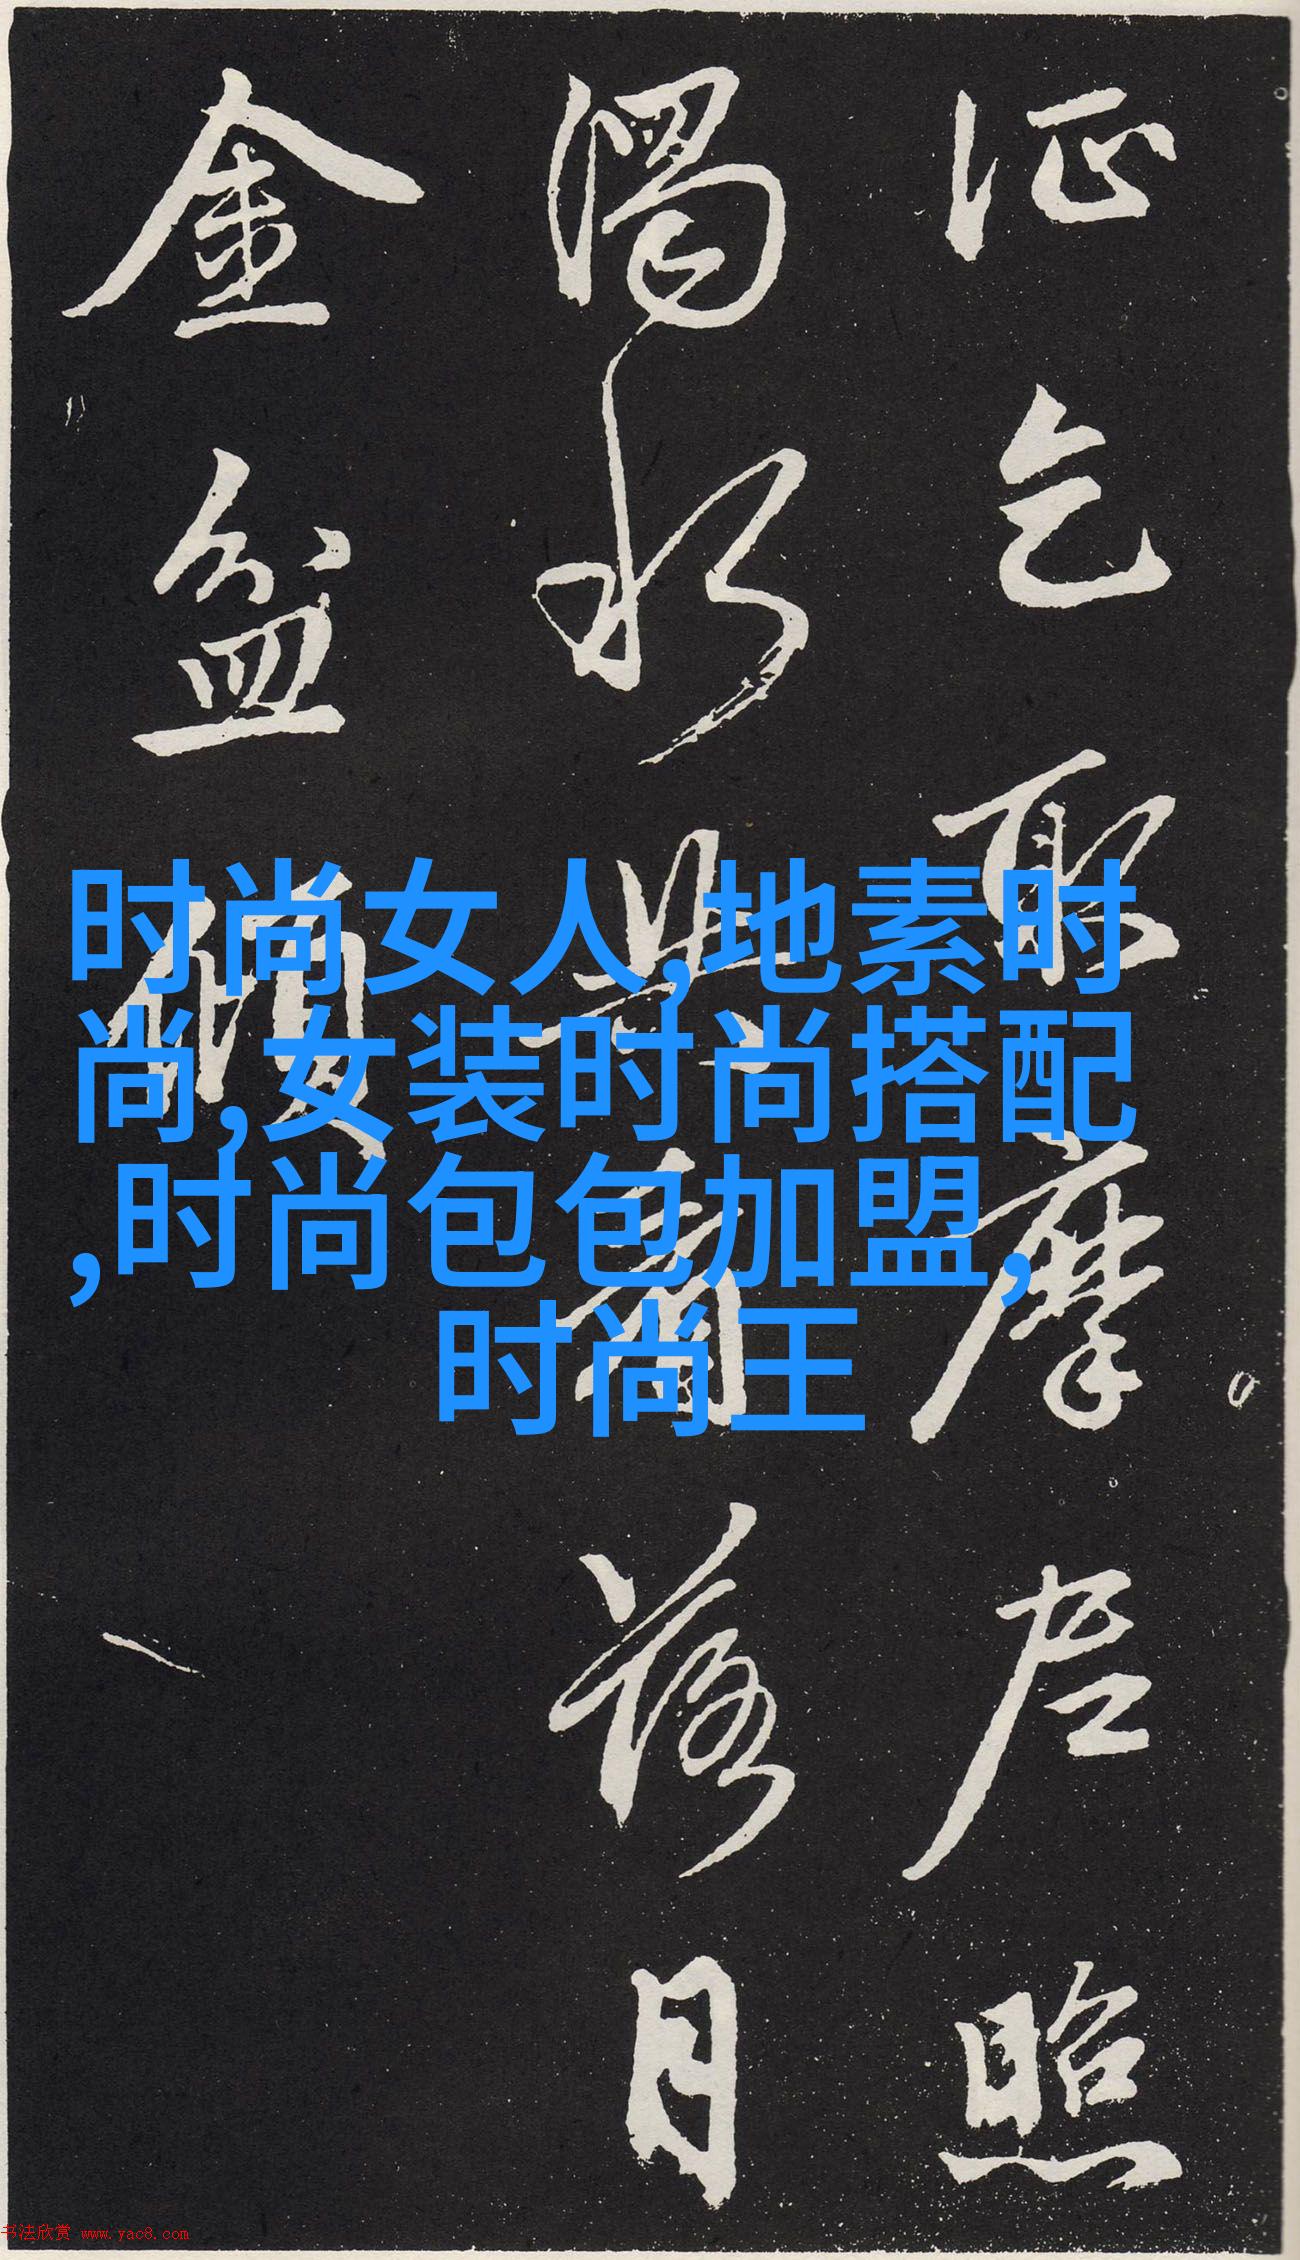 乞取摩尼照
濁水共看落月
金盆傾
时尚女人,地素时
尚,女装时尚搭配
,时尚包包加盟,
时尚王
书法欣赏 www.yac8.com